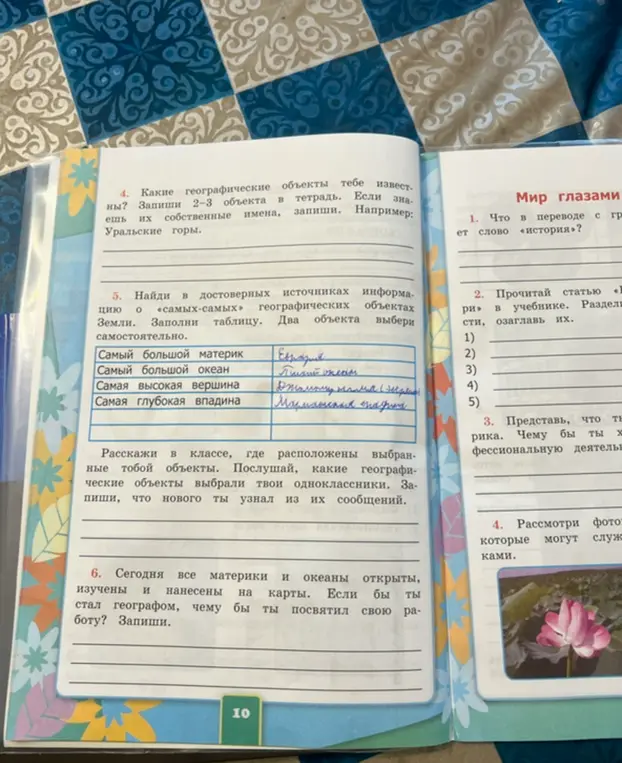 4. Какие географические объекты тебе извест-
ны? Запиши 2–3 объекта в тетрадь. Если зна-
ешь их собственные имена, запиши. Например:
Уральские горы.
5. Найди в достоверных источниках информа-
цию о «самых-самых» географических объектах
Земли. Заполни таблицу. Два объекта выбери
самостоятельно.
Самый большой материк Евразия
Самый большой океан Тихий океан
Самая высокая вершина
Самая глубокая впадина Марианская впадина
Расскажи в классе, где расположены выбран-
ные тобой объекты. Послушай, какие географи-
ческие объекты выбрали твои одноклассники. За-
пиши, что нового ты узнал из их сообщений.
6. Сегодня все материки и океаны открыты,
изучены и нанесены на карты. Если бы ты
стал географом, чему бы ты посвятил свою ра-
боту? Запиши.
10
Мир глазами
1. Что в переводе с гр
ет слово «история»?
2. Прочитай статью «
ри» в учебнике. Раздел
сти, озаглавь их.
1)
2)
3)
4)
5)
3. Представь, что т
рика. Чему бы ты х
фессиональную деятель
4. Рассмотри фото
которые могут служ
ками.